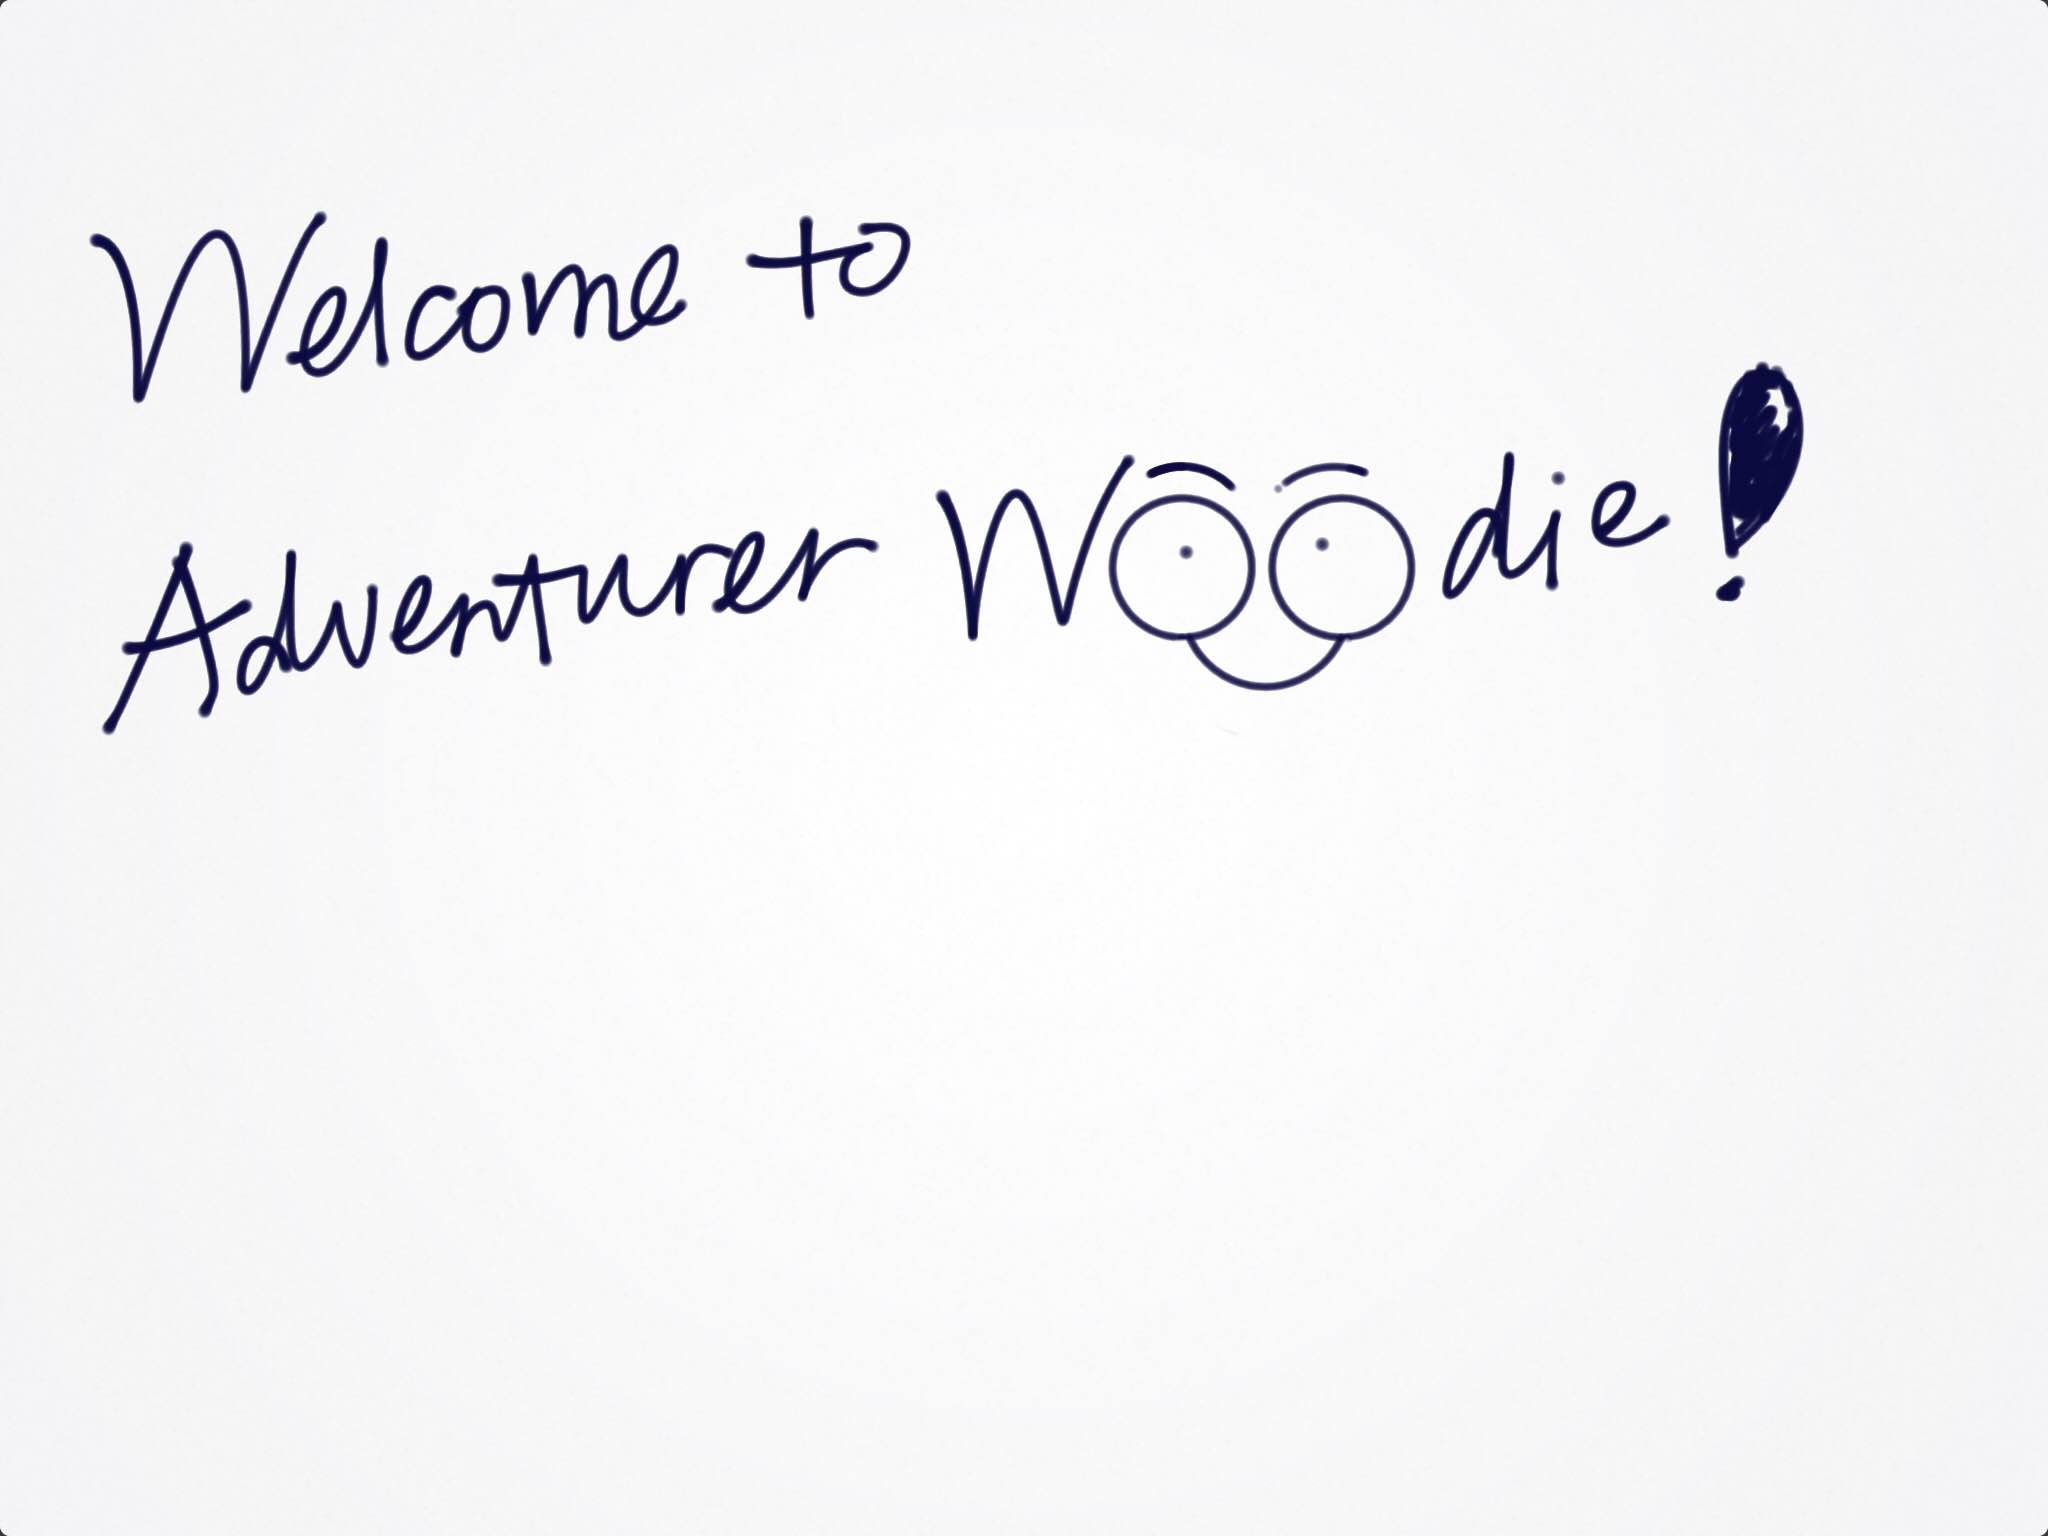 Welcome to
Adventurer Woodie!